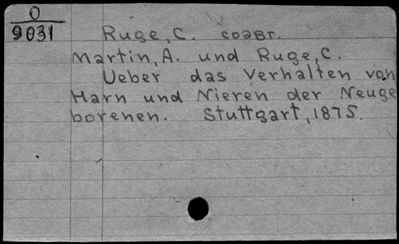 O
9031
Ruge, C. соавт.
Martin, A. und Ruge, C.
Ueber das Verhalten von
Harn und Nieren der Neuge
borenen. Stuttgart, 1875.